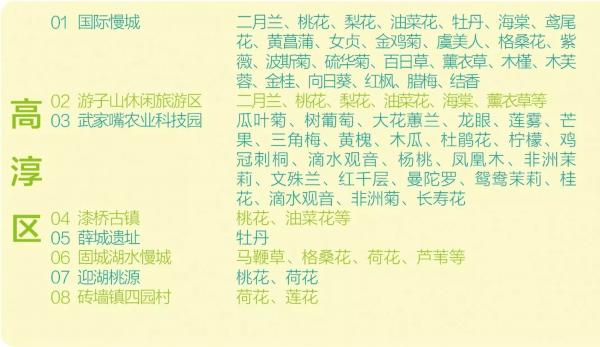 高淳区
01 国际慢城 二月兰、桃花、梨花、油菜花、牡丹、海棠、鸢尾
花、黄菖蒲、女贞、金鸡菊、虞美人、格桑花、紫
薇、波斯菊、硫华菊、百日草、薰衣草、木槿、木芙
蓉、金桂、向日葵、红枫、腊梅、结香
02 游子山休闲旅游区 二月兰、桃花、梨花、油菜花、海棠、薰衣草等
03 武家嘴农业科技园 瓜叶菊、树葡萄、大花蕙兰、龙眼、莲雾、芒
果、三角梅、黄槐、木瓜、杜鹃花、柠檬、鸡
冠刺桐、滴水观音、杨桃、凤凰木、非洲茉
莉、文殊兰、红千层、曼陀罗、鸳鸯茉莉、桂
花、滴水观音、非洲菊、长寿花
04 漆桥古镇 桃花、油菜花等
05 薛城遗址 牡丹
06 固城湖水慢城 马鞭草、格桑花、荷花、芦苇等
07 迎湖桃源 桃花、荷花
08 砖墙镇四园村 荷花、莲花